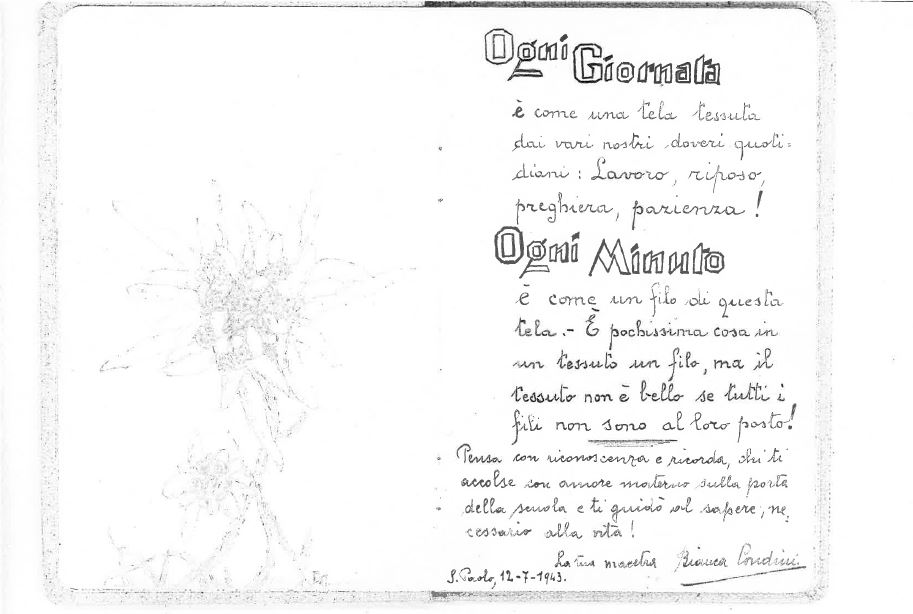 Ogni Giornata
è come una tela tessuta
dai vari nostri doveri quoti=
diani: Lavoro, riposo,
preghiera, pazienza!
Ogni Minuto
è come un filo di questa
tela.- È pochissima cosa in
un tessuto un filo, ma il
tessuto non è bello se tutti i
fili non sono al loro posto!
Pensa con riconoscenza e ricorda, chi ti
accolse con amore materno sulla porta
della scuola e ti guidò al sapere, ne
cessario alla vita!
La tua maestra Bianca Condini
S. Paolo, 12-7-1943.